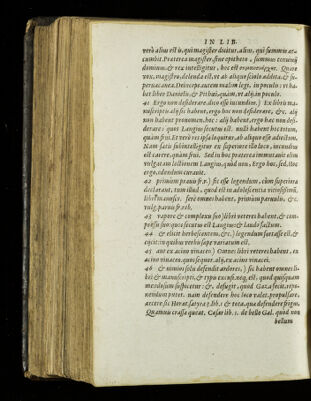 IN LIB.
verò alius est is, qui magister dicitur, alius, qui summus ac-
cumbit. Præterea magister, sine epitheto, summus conuiuij
dominus, & rex intelligitur, hoc est
vox, magistro, delenda est, vt ab aliquo sciolo addita, & su-
peruacanea. Deinceps autem malim legi, in poculo: vt ha-
bet liber Danielis, & Pithœi, quàm, vt alij, in poculis.
41 Ergo non desiderare, dico esse iucundius.) Ex libris ma-
nuscriptis alij sic habent, ergo hoc non desiderare, &c. alij
non habent pronomen, hoc: alij habent, ergo hac non desi-
derare: quos Langius secutus est. nulli habent hoc totum,
quàm frui. Et verò res ipsa loquitur, ab aliquo esse adiectum.
Nam satis subintelligitur ex superiore illo loco, iucundius
est carere, quàm frui. Sed in hoc præterea immutauit olim
vulgatam lectionem Langius, quòd non, Ergo hoc, sed, hoc
ergo, edendum curauit.
42 primùm prauis fr.) sic esse legendum, cùm superiora
declarant, tum illud, quod est in adolescentia
libri manuscr. ferè omnes habent, primùm paruulis, &c.
vulg. paruis fr. reb.
43 vapore & complexu suo) libri veteres habent, & com-
pressu suo: quos secutus est Langius: & laudo factum.
44 & elicit herbescentem, &c.) legendum fortasse est, &
eijcit: in quibus verbis sæpe variatum est.
45 aut ex acino vinaceo) Omnes libri veteres habent, ex
acino vinaceo. quos sequor. alij, ex acinis vinacei.
46 & nimios solis defendit ardores,) sic habent omnes li-
bri & manuscripti, & typis excusi. neq. est, quod quisquam
mendosum suspicetur: &, defugit, quod Gaza fecit, repo-
nendum putet. nam defendere hoc loco valet, propulsare,
arcere: sic Horat. satyra 3. lib. 1. & toga, quæ defendere frigus,
Quamuis crassa queat. Cæsar lib. 1. de bello Gal. quòd non
bellum